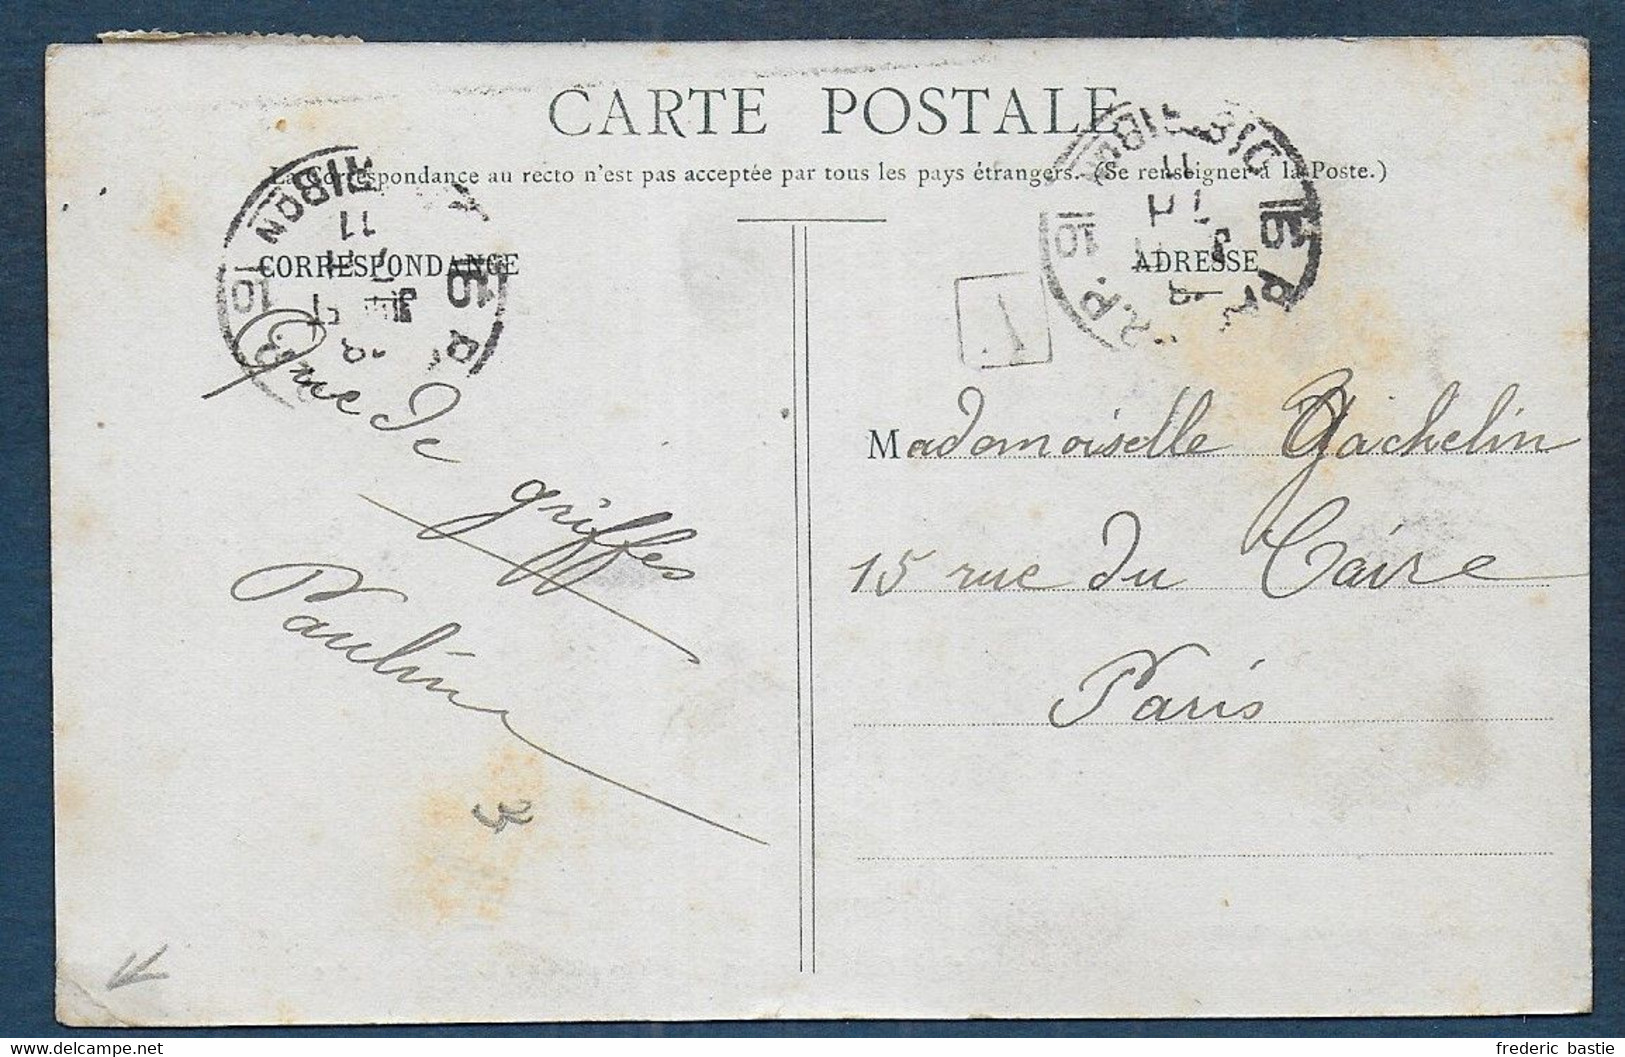 CARTE POSTALE
La Correspondance au recto n'est pas acceptée par tous les pays étrangers. (Se renseigner à la Poste.)
CORRESPONDANCE
ADRESSE
T
10
10
16
11
de
griffes
Pauline
3
Mademoiselle Gachelin
15 rue du Caire
Paris
frederic bastie